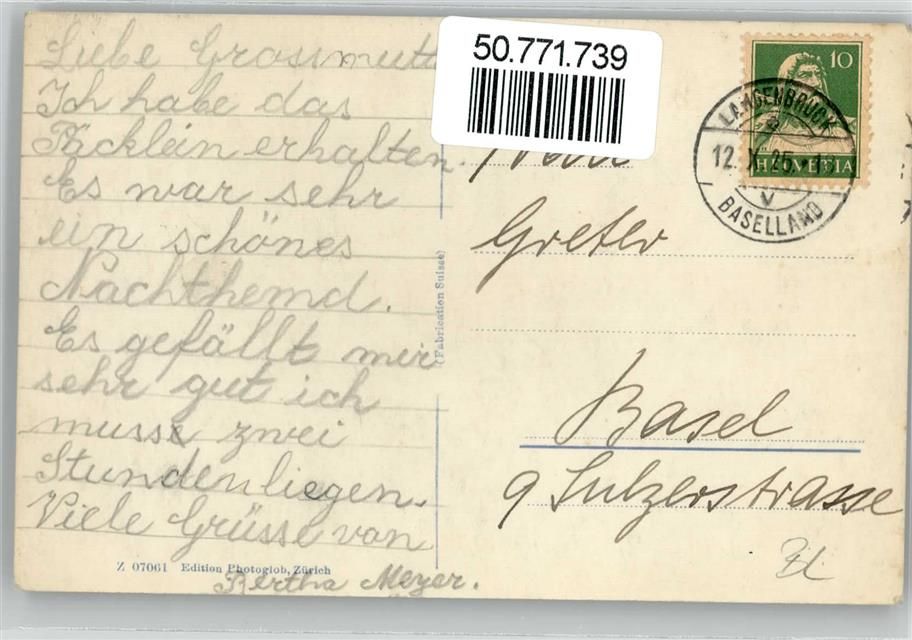 Liebe Grossmutt
Ich habe das
Päcklein erhalten.
Es war sehr
ein schönes
Nachthemd.
Es gefällt mir
sehr gut ich
muss zwei
Stunden liegen.
Viele Grüsse von
Bertha Meyer.
Z 07061 Edition Photoglob, Zürich
(Fabrication Suisse)
50.771.739
10
HELVETIA
LANGENBRUCK
12. X. 25.
V
BASELLAND
Greter
Basel
9 Sulzerstrasse